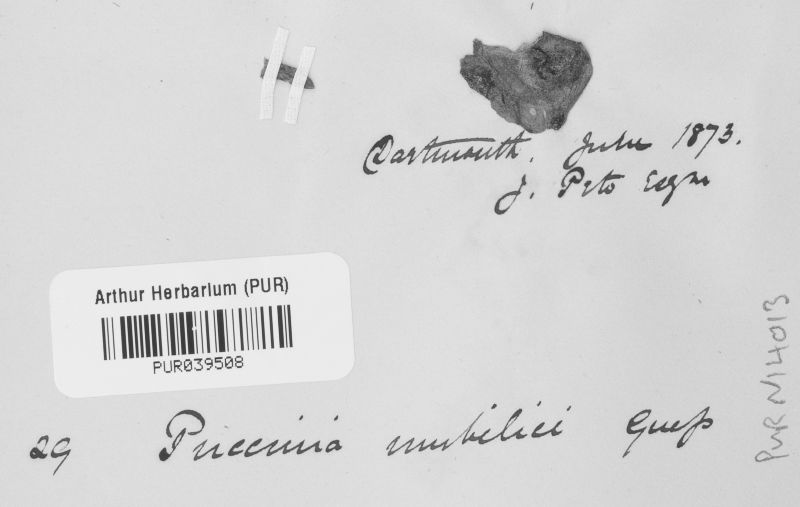 Dartmouth. July 1873.
J. Peto Esqre
Arthur Herbarium (PUR)
PUR039508
29 Puccinia umbilici Guep
PUR N14013